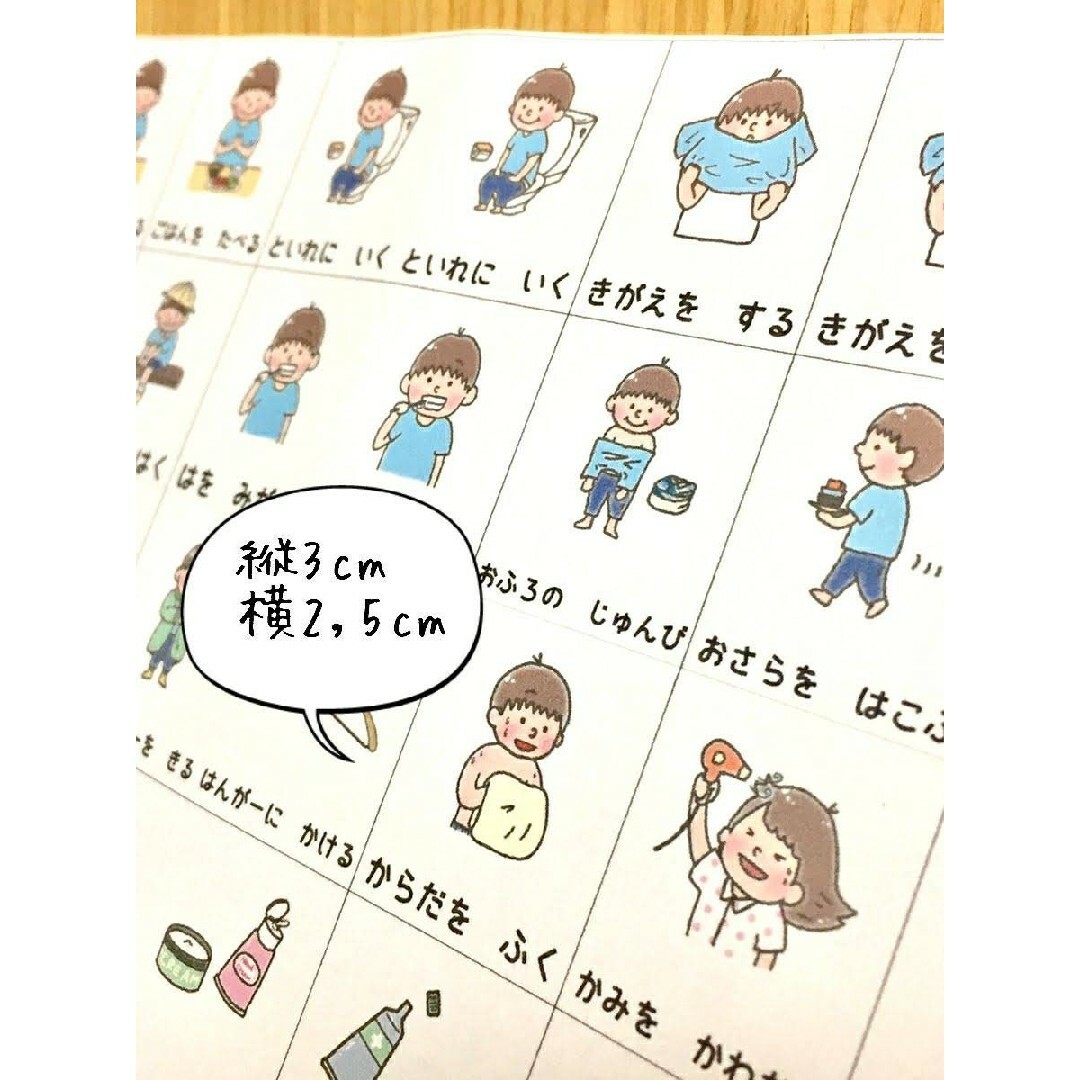 ごはんを たべる
といれに いく
といれに いく
きがえを する
きがえを
はく
はを みが
おふろの じゅんび
おさらを はこぶ
縦3cm
横2,5cm
を きる
はんがーに かける
からだを ふく
かみを かわか
CREAM